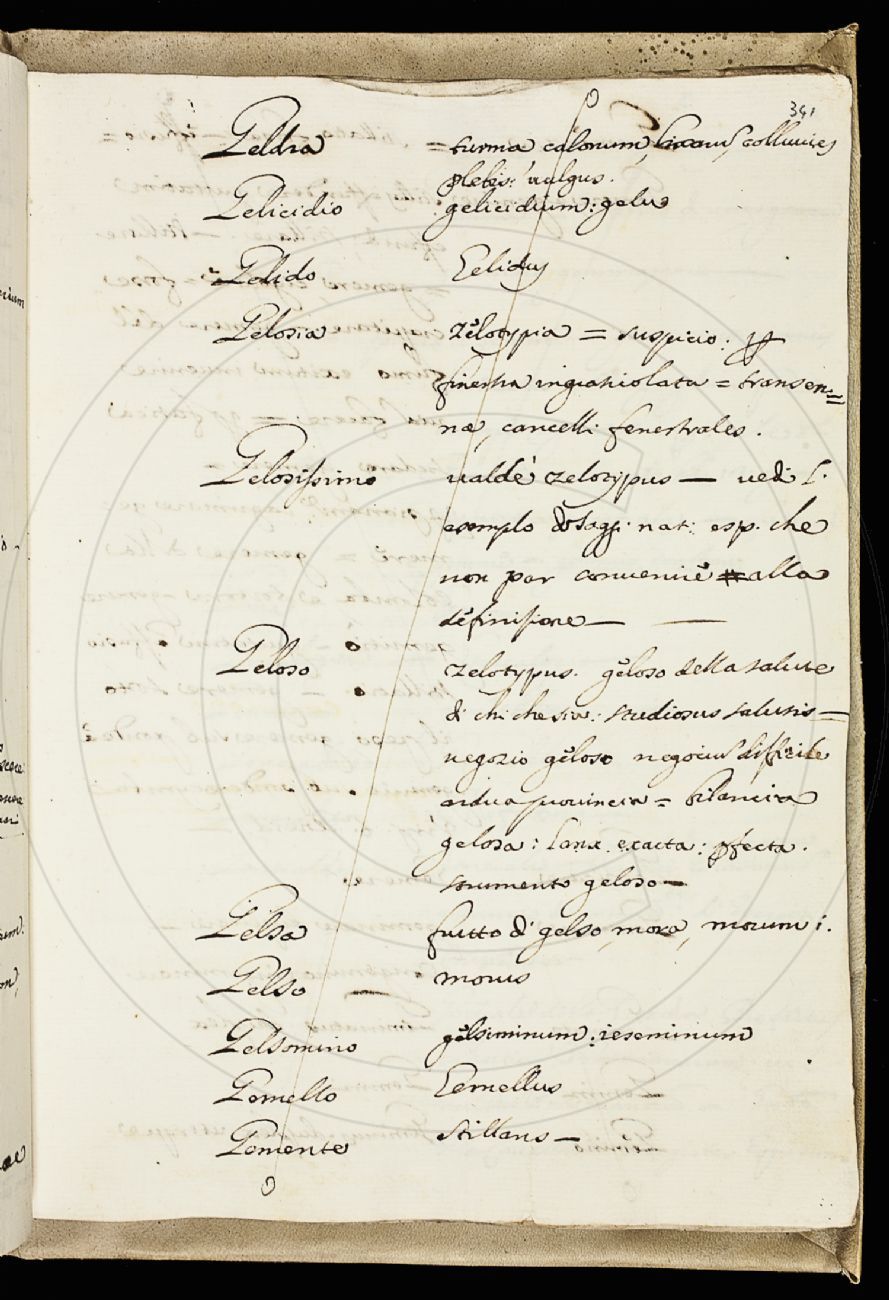 341
Geldra = turma calonum, collunies
plebis: vulgus.
Gelicidio gelicidium: gelu
Gelido Gelidus
Gelosia zèlotypia = suspicio:
finestra ingratiolata = transen=
na, cancelli fenestrales.
Gelosissimo valdè zelotypus — vedi l'
esemplo nat: esp. che
non par convenire alla
definisione —
Geloso zelotypus. gèloso della salute
di chi che sia: studiosus salutis =
negozio gèloso negocium difficile
ardua provincia = bilancia
gelosa: lanx exacta: pfecta.
strumento geloso —
Gelsa frutto di gelso, mora, morum i.
Gelso — morus
Gelsomino gèlsiminum: ieseminum
Gemello Gemellus
Gemente stillans —